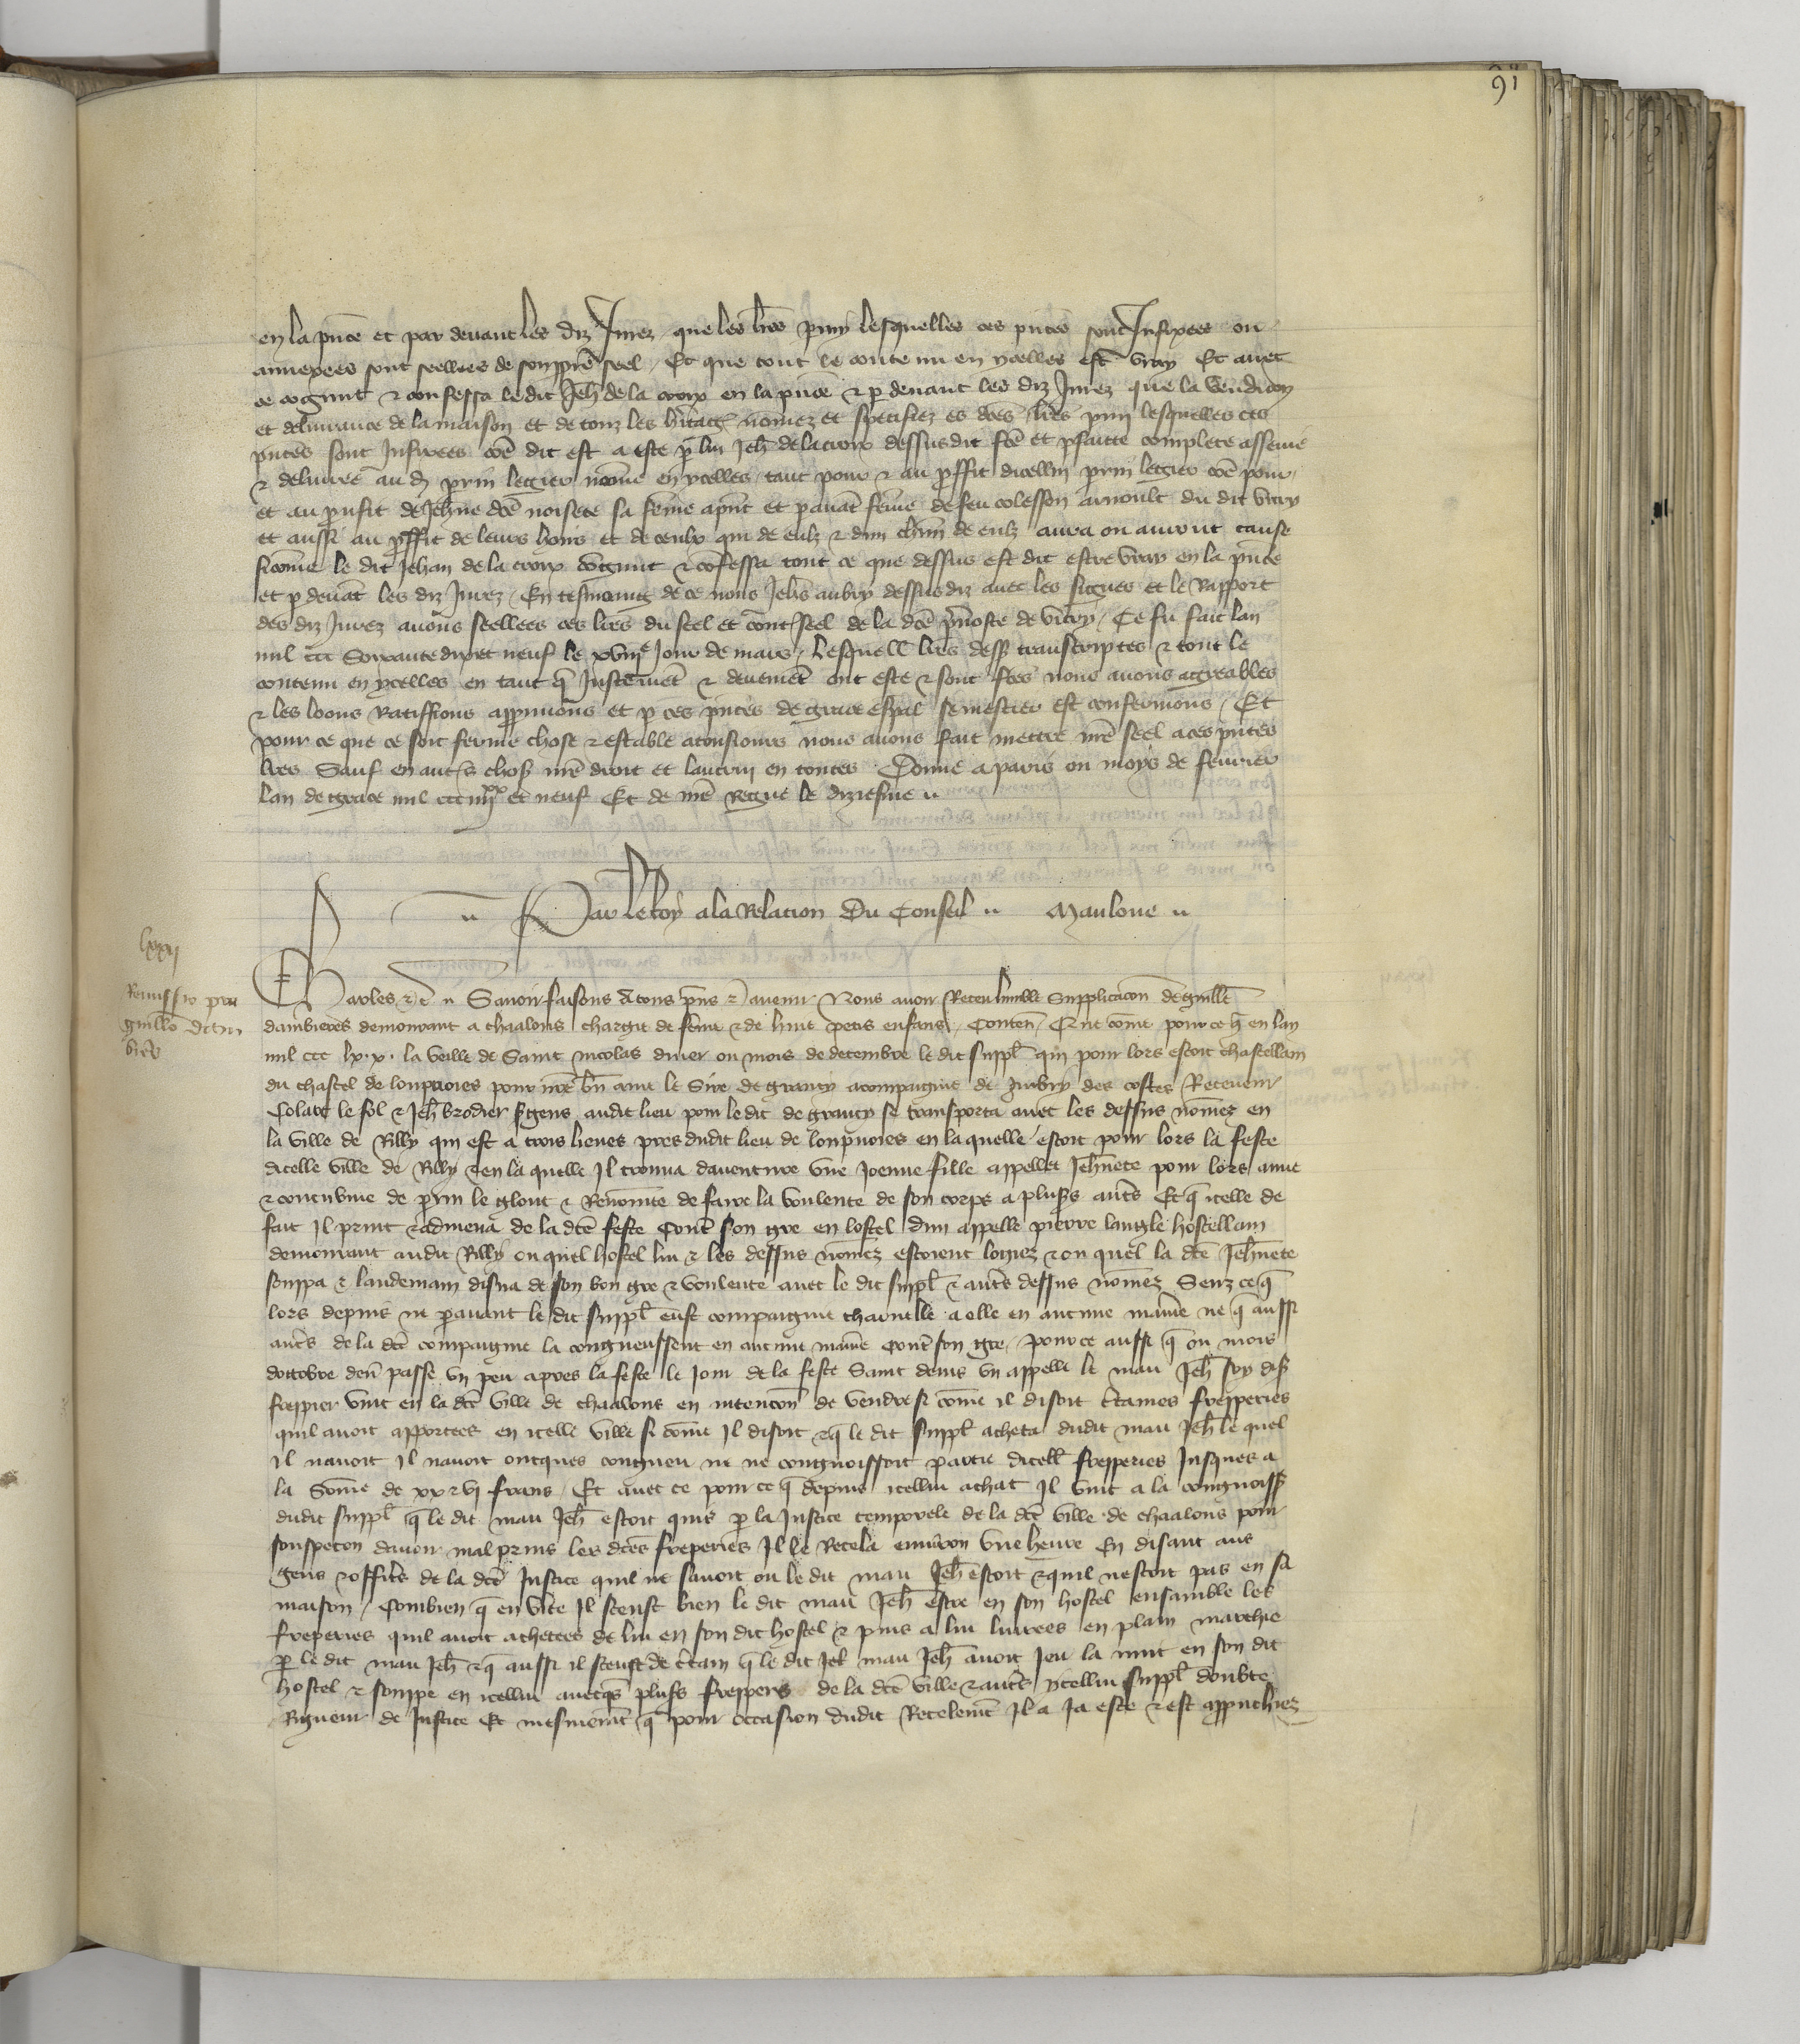 91
en la pnce et par devant les diz Jurez que les lres pmy lesquelles ces pntes sont Infixees ou
annexees sont scellees de son ppre seel / Et que tout le contenu en ycelles est vray Et avec
ce cognut & confessa le dit Jeh de la croix en la pnce & p devant les diz Jurez que la vendicon
et delivrance de la maison et de touz les heritaig nomez et specifiez es dces lres pmi lesquelles ces
pntes sont Infixees coe dit est a este p lui Jeh de la croix dessus dit fce et pfaitte complete assevie
& delivree au d prin legier nome en ycelles tant pour & au pffit dicellui prin legier coe pour
et au proufit de Jehne dce noisete sa feme apnt et pavat feme de feu colesson arnoult du dit vitry
et aussi au pffit de leurs hoirs et de ceulx qui de eulz & dun chun de eulz aura ou auront cause
sicome le dit Jehan de la croix cognut & cofessa tout ce que dessus est dit estre vray en la pnce
et p devat les diz Jurez / En tesmoing de ce nous Jehs aubry dessus diz avec les signes et le Rapport
des diz Jurez avons scellees ces lres du seel et contseel de la dce prevoste de vitry / Ce fu fait lan
mil ccc Soixante dix et neuf le xviije Jour de mars / Lesquell lres dess transcriptes & tout le
contenu en ycelles en tant q Justemet & deuemet ont este & sont fces nous avons aggreables
& les loons Ratiffions appruvons et p ces pntes de grace espal se mestier est confermons / Et
pour ce que ce soit ferme chose & estable a tousiours nous avons fait mettre nre seel a ces pntes
lres Sauf en autres chos nre droit et lautruy en toutes Donne a paris ou moys de fevrier
lan de grace mil ccc iiijxx et neuf Et de nre Regne le dizieme
Par le Roy a la Relacion Du Conseil Mauloue
lxxij
Remissio pro
guillo dictum
Charles &c Savoir faisons A tous pns & avenir Nous avoir Receu humble Supplicacon de guille
dambieres demourant a chaalons chargie de feme & de huit petis enfans / Conten Que come pour ce q en lan
mil ccc lx.x. la veille de Saint nicolas diver ou mois de decembre le dit suppl qui pour lors estoit chastellain
du chastel de lonpvoies pour nre bn ame le Sire de grancy acompaignie de Jmbry des costes Receveur
Colart le fol & Jeh brodier sgens audit lieu pour le dit de grancy se transporta avec les dessus nomez en
la ville de Rilly qui est a trois lieues pres dudit lieu de lonpvoies en laquelle estoit pour lors la feste
dicelle ville de Rilly & en laquelle Il trouva daventure une Joenne fille appellee Jehnete pour lors amie
& concubine de prin le glout & Renomee de faire la voulente de son corps a pluss auts Et q icelle de
fait Il print & admena de la dce feste cont son gre en lostel dun appelle pierre langle hostellain
demourant audit Rilly ou quel hostel lui & les dessus nomez estoient logiez & ou quel la dce Jehnete
souppa & landemain disna de son bon gre & voulente avec le dit suppl & auts dessus nomez Senz ce q
lors depuis ne pavant le dit suppl eust compaignie charnelle a elle en aucune maniere ne q aussi
auts de la dce compaignie la congneussent en aucune maniere cont son gre / pour ce aussi q ou mois
doctobre den passe un peu apres la feste le Jour de la feste Saint denis un appelle le mau Jeh soy dis
freppier vint en la dce ville de chaalons en intencon de vendre si come il disoit ctaines frepperies
quil avoit apportees en icelle ville si come Il disoit & q le dit suppl acheta dudit mau Jeh le quel
il navoit Il navoit oncques congneu ne ne congnoissoit partie dicell frepperies Jusques a
la some de xx & vj frans / Et avec ce pour ce q depuis icellui achat Il vint a la congnoiss
dudit suppl q le dit mau Jeh estoit quis p la Justice temporele de la dce ville de chaalons pour
souspecon davoir mal prins les dces freperies Il le Recela environ une heure En disant aus
gens & officrs de la dce Justice quil ne savoit ou le dit mau Jeh estoit & quil nestoit pas en sa
maison / Combien q en vite Il sceust bien le dit mau Jeh estre en son hostel ensamble les
freperies quil avoit achetees de lui en son dit hostel & puis a lui livrees en plain marchie
p le dit mau Jeh & q aussi il sceust de ctain q le dit Jeh mau Jeh avoit Jeu la nuit en son dit
hostel & souppe en icellui avecqs pluss freppiers de la dce ville & auts ycellui suppl doubte
Rigueur de Justice Et mesmemt q pour occasion dudit Recelemt Il a Ja este & est approuchiez